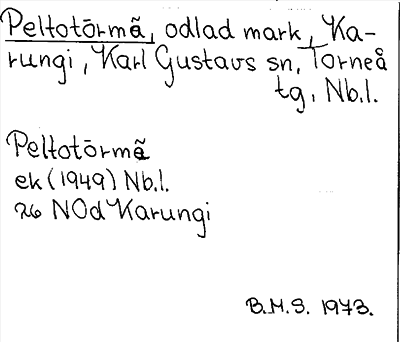 Peltotōrmã̀, odlad mark, Ka-
rungi, Karl Gustavs sn, Torneå
tg, Nb.l.
Peltotōrmã̀
ek (1949) Nb.l.
26 NOd Karungi
B.M.S. 1973.